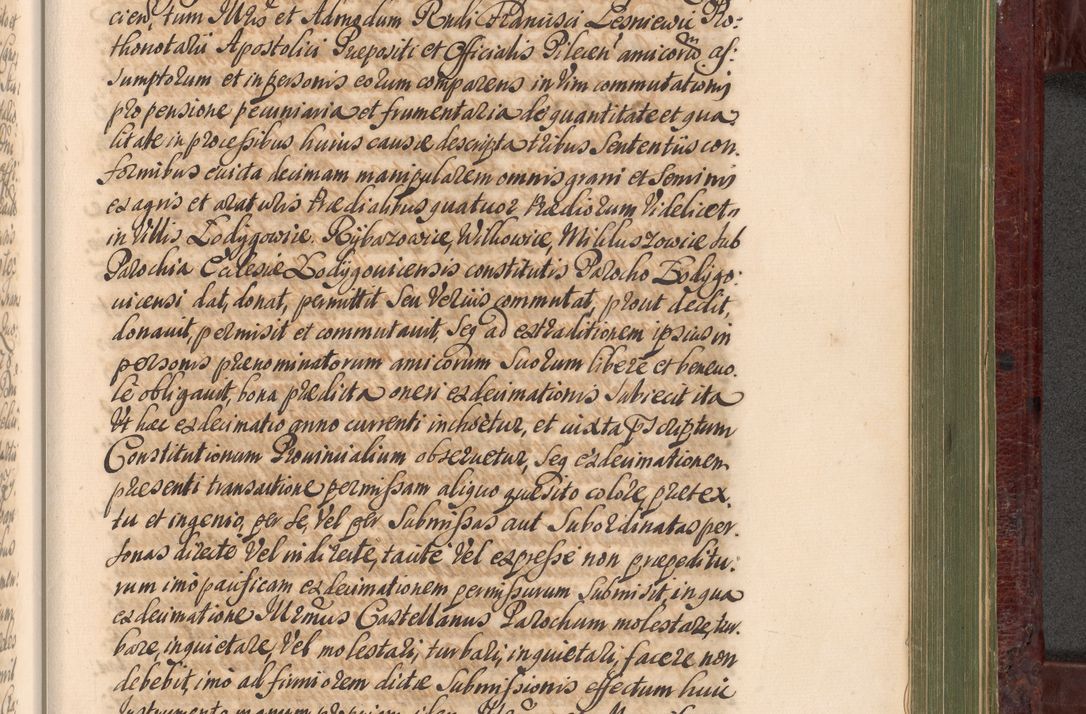 cien, tum Illris et Admodum Rndi Francisci Lesniewic Pro-
thonotarii Apostolici Præpositi et Officialis Pilecen amicorum as-
sumptorum et in personis eorum comparens in vim commutationis
pro pensione pecuniaria et frumentaria de quantitate et qua-
litate in processibus huius causæ descripta tribus Sententiis con-
formibus evicta decimam manipularem omnis grani et seminis
ex agris et araturis Prædialibus quatuor Prædiorum videlicet
in Villis Łodygowice, Rybarzowice, Wilkowice, Mikluszowice sub
Parochia Ecclesiæ Łodygovicensis constitutis Parocho Łodygo-
vicensi dat, donat, permittit seu verius commutat, prout dedit,
donavit, permisit et commutavit, seq ad extraditionem ipsius in
personis prænominatorum amicorum suorum libere et benevo-
le obligavit, bona prædicta oneri exdecimationis subiecit ita
Ut hæc exdecimatio anno currenti inchoetur, et iuxta præscriptum
Constitutionum Provincialium observetur, seq exdecimationem
præsenti transactione permissam aliquo quæsito colore, prætex-
tu et ingenio, per se, vel per submissas aut subordinatas per-
sonas directe vel indirecte, tacite vel expresse non præpeditu-
rum imo pacificam exdecimationem permissurum submisit, in qua
exdecimatione Illrmus Castellanus Parochum molestare, tur-
bare, inquietare, vel molestari, turbari, inquietari, facere non
debebit, imo ad firmiorem dictæ submissionis effectum huic
Instrumento manum propriam